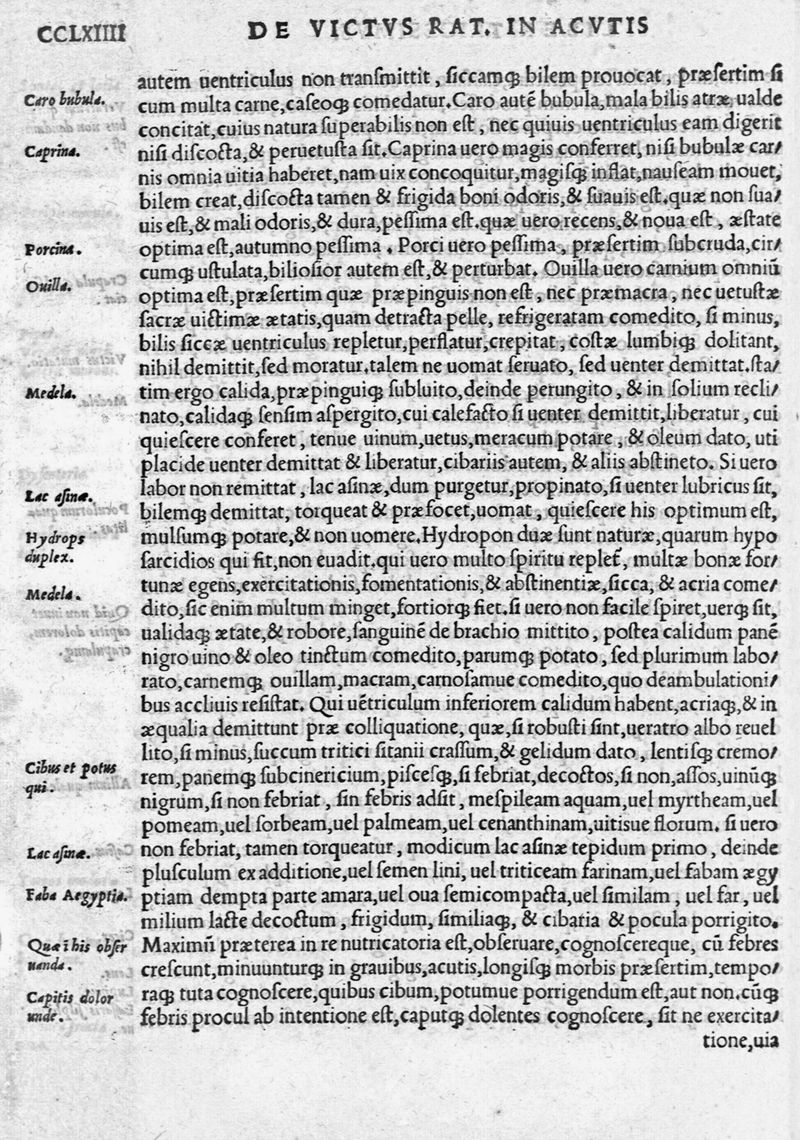 CCLXIIII DE VICTVS RAT. IN ACVTIS
autem uentriculus non tranſmittit, ſiccamq́; bilem prouocat, præſertim ſi
Caro bubula.
cum multa carne, caſeoq́; comedatur. Caro autē bubula, mala bilis atræ ualde
concitat, cuius natura ſuperabilis non eſt, nec quiuis uentriculus eam digerit
Caprina.
niſi diſcocta, & peruetuſta ſit. Caprina uero magis conferret, niſi bubulæ car/
nis omnia uitia haberet, nam uix concoquitur, magiſq́; inflat, nauſeam mouet,
bilem creat, diſcocta tamen & frigida boni odoris, & ſuauis eſt. quæ non ſua/
uis eſt, & mali odoris, & dura, peſſima eſt. quæ uero recens, & noua eſt, æſtate
Porcina.
optima eſt, autumno peſſima. Porci uero peſſima, præſertim ſubcruda, cir/
cumq́; uſtulata, bilioſior autem eſt, & perturbat. Ouilla uero carnium omniū
Ouilla.
optima eſt, præſertim quæ præpinguis non eſt, nec præmacra, nec uetuſtæ
ſacræ uictimæ ætatis, quam detracta pelle, refrigeratam comedito, ſi minus,
bilis ſiccæ uentriculus repletur, perflatur, crepitat, coſtæ lumbiq́; dolitant,
nihil demittit, ſed moratur. talem ne uomat ſeruato, ſed uenter demittat. ſta/
Medela.
tim ergo calida, præpinguiq́; ſubluito, deinde perungito, & in ſolium recli/
nato, calidaq́; ſenſim aſpergito, cui calefacto ſi uenter demittit, liberatur, cui
quieſcere conferet, tenue uinum, uetus, meracum potare, & oleum dato, uti
placide uenter demittat & liberatur, cibariis autem, & aliis abſtineto. Si uero
Lac aſinæ.
labor non remittat, lac aſinæ, dum purgetur, propinato, ſi uenter lubricus ſit,
bilemq́; demittat, torqueat & præfocet, uomat, quieſcere his optimum eſt,
Hydrops
mulſumq́; potare, & non uomere. Hydropon duæ ſunt naturæ, quarum hypo
duplex.
ſarcidios qui fit, non euadit. qui uero multo ſpiritu repleť, multæ bonæ for/
tunæ egens, exercitationis, fomentationis, & abſtinentiæ, ſicca, & acria come/
Medela.
dito, ſic enim multum minget, fortiorq́; fiet. ſi uero non facile ſpiret, uerq́; ſit,
ualidaq́; ætate, & robore, ſanguinē de brachio mittito, poſtea calidum panē
nigro uino & oleo tinctum comedito, parumq́; potato, ſed plurimum labo/
rato, carnemq́; ouillam, macram, carnoſamue comedito, quo deambulationi/
bus accliuis reſiſtat. Qui uētriculum inferiorem calidum habent, acriaq́;, & in
æqualia demittunt præ colliquatione, quæ, ſi robuſti ſint, ueratro albo reuel
lito, ſi minus, ſuccum tritici ſitanii craſſum, & gelidum dato, lentiſq́; cremo/
Cibus et potus
rem, panemq́; ſubcinericium, piſceſq́;, ſi febriat, decoctos, ſi non, aſſos, uinūq́;
qui.
nigrum, ſi non febriat, ſin febris adſit, meſpileam aquam, uel myrtheam, uel
pomeam, uel ſorbeam, uel palmeam, uel cenanthinam, uitisue florum. ſi uero
Lac aſinæ.
non febriat, tamen torqueatur, modicum lac aſinæ tepidum primo, deinde
pluſculum ex additione, uel ſemen lini, uel triticeam farinam, uel fabam ægy
Faba Aegyptia.
ptiam dempta parte amara, uel oua ſemicompacta, uel ſimilam, uel far, uel
milium lacte decoctum, frigidum, ſimiliaq́;, & cibaria & pocula porrigito.
Quæ ī his obſer
Maximū præterea in re nutricatoria eſt, obſeruare, cognoſcereque, cū febres
uanda.
creſcunt, minuunturq́; in grauibus, acutis, longiſq́; morbis præſertim, tempo/
Capitis dolor
raq́; tuta cognoſcere, quibus cibum, potumue porrigendum eſt, aut non. cūq́;
unde.
febris procul ab intentione eſt, caputq́; dolentes cognoſcere, ſit ne exercita/
tione, uia